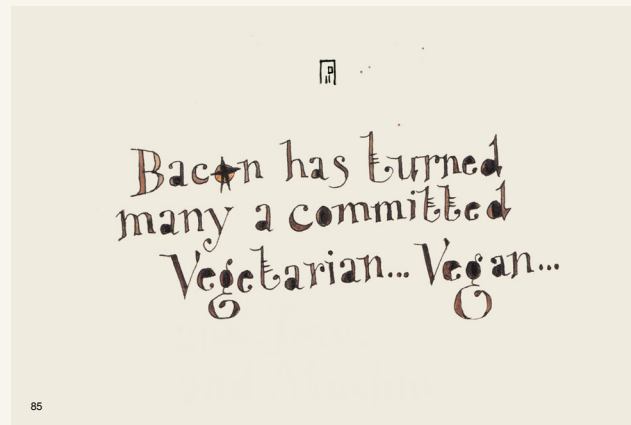 Bacon has turned
many a committed
Vegetarian... Vegan...
85